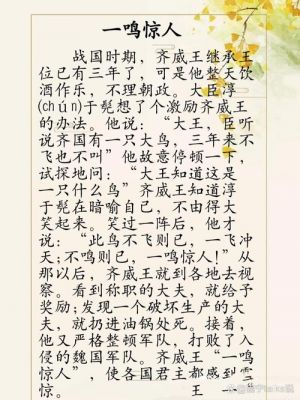 一鸣惊人
战国时期，齐威王继承王
位已有三年了，可是他整天饮
酒作乐，不理朝政。大臣淳
(chún)于髡想了个激励齐威王
的办法。他说：“大王，臣听
说齐国有一只大鸟，三年来不
飞也不叫”他故意停顿一下，
试探地问：“大王知道这是
一只什么鸟”齐威王知道淳
于髡在暗喻自己，不由得大
笑起来。笑过一阵后，他才
说：“此鸟不飞则已，一飞冲
天;不鸣则已，一鸣惊人！”从
那以后，齐威王就到各地去视
察。看到称职的大夫，就给予
奖励;发现一个破坏生产的大
夫，就扔进油锅处死。接着，
他又严格整顿军队，打败了入
侵的魏国军队。齐威王“一鸣
惊人”，使各国君主都感到震
惊。